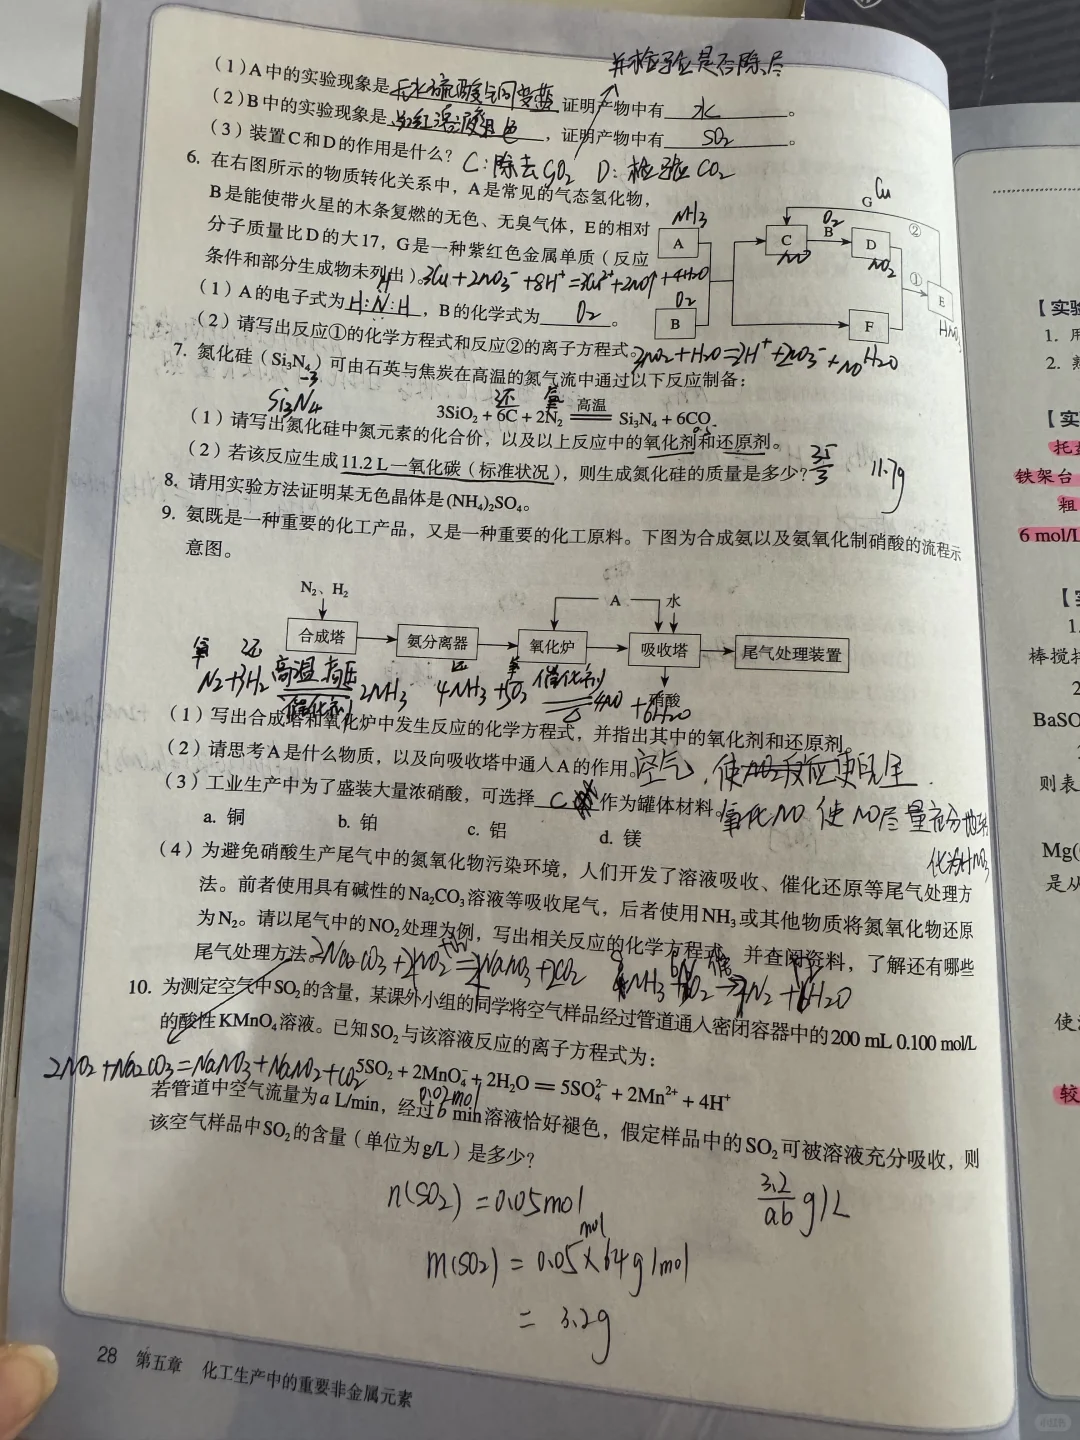 并检验是否除尽
(1) A中的实验现象是无水硫酸铜变蓝 证明产物中有 水 。
(2) B中的实验现象是品红溶液褪色，证明产物中有 SO₂ 。
(3) 装置C和D的作用是什么？ C:除去SO₂ D:检验CO₂
6. 在右图所示的物质转化关系中，A是常见的气态氢化物，
B是能使带火星的木条复燃的无色、无臭气体，E的相对
分子质量比D的大17，G是一种紫红色金属单质（反应
条件和部分生成物未列出）。3Cu+2NO₃⁻+8H⁺=3Cu²⁺+2NO↑+4H₂O
(1) A的电子式为H:N:H，B的化学式为 O₂ 。
H
(2) 请写出反应①的化学方程式和反应②的离子方程式。3NO₂+H₂O=2H⁺+2NO₃⁻+NO
NH₃
A
O₂
B
C
NO
O₂
B
D
NO₂
G Cu
②
①
E
HNO₃
F
H₂O
7. 氮化硅（Si₃N₄）可由石英与焦炭在高温的氮气流中通过以下反应制备：
-3
Si₃N₄
还 氧
3SiO₂ + 6C + 2N₂ 高温 Si₃N₄ + 6CO
(1) 请写出氮化硅中氮元素的化合价，以及以上反应中的氧化剂和还原剂。
(2) 若该反应生成11.2 L一氧化碳（标准状况），则生成氮化硅的质量是多少？ 11.7g
8. 请用实验方法证明某无色晶体是(NH₄)₂SO₄。
9. 氨既是一种重要的化工产品，又是一种重要的化工原料。下图为合成氨以及氨氧化制硝酸的流程示
意图。
N₂、H₂
A
水
合成塔
氨分离器
氧化炉
吸收塔
尾气处理装置
硝酸
氧 还
N₂+3H₂ 高温 高压 催化剂 2NH₃
还 氧
4NH₃+5O₂ 催化剂 △ 4NO+6H₂O
(1) 写出合成塔和氧化炉中发生反应的化学方程式，并指出其中的氧化剂和还原剂。
(2) 请思考A是什么物质，以及向吸收塔中通入A的作用。空气，
(3) 工业生产中为了盛装大量浓硝酸，可选择 C 作为罐体材料。
氧化NO 使NO尽量充分地转
化为HNO₃
a. 铜 b. 铂 c. 铝 d. 镁
(4) 为避免硝酸生产尾气中的氮氧化物污染环境，人们开发了溶液吸收、催化还原等尾气处理方
法。前者使用具有碱性的Na₂CO₃溶液等吸收尾气，后者使用NH₃或其他物质将氮氧化物还原
为N₂。请以尾气中的NO₂处理为例，写出相关反应的化学方程式，并查阅资料，了解还有哪些
尾气处理方法。
10. 为测定空气中SO₂的含量，某课外小组的同学将空气样品经过管道通入密闭容器中的200 mL 0.100 mol/L
的酸性KMnO₄溶液。已知SO₂与该溶液反应的离子方程式为：
2NO₂+Na₂CO₃=NaNO₃+NaNO₂+CO₂
5SO₂ + 2MnO₄⁻ + 2H₂O = 5SO₄²⁻ + 2Mn²⁺ + 4H⁺
0.02mol
若管道中空气流量为a L/min，经过b min溶液恰好褪色，假定样品中的SO₂可被溶液充分吸收，则
该空气样品中SO₂的含量（单位为g/L）是多少？
n(SO₂) = 0.05mol
3.2/ab g/L
m(SO₂) = 0.05mol×64g/mol
= 3.2g
28 第五章 化工生产中的重要非金属元素
【实验
1. 用
2. 熟
【实
托盘
铁架台
粗
6 mol/L
【实
1.
棒搅拌
2
BaSO
则表
Mg(
是从
使
较
小红书